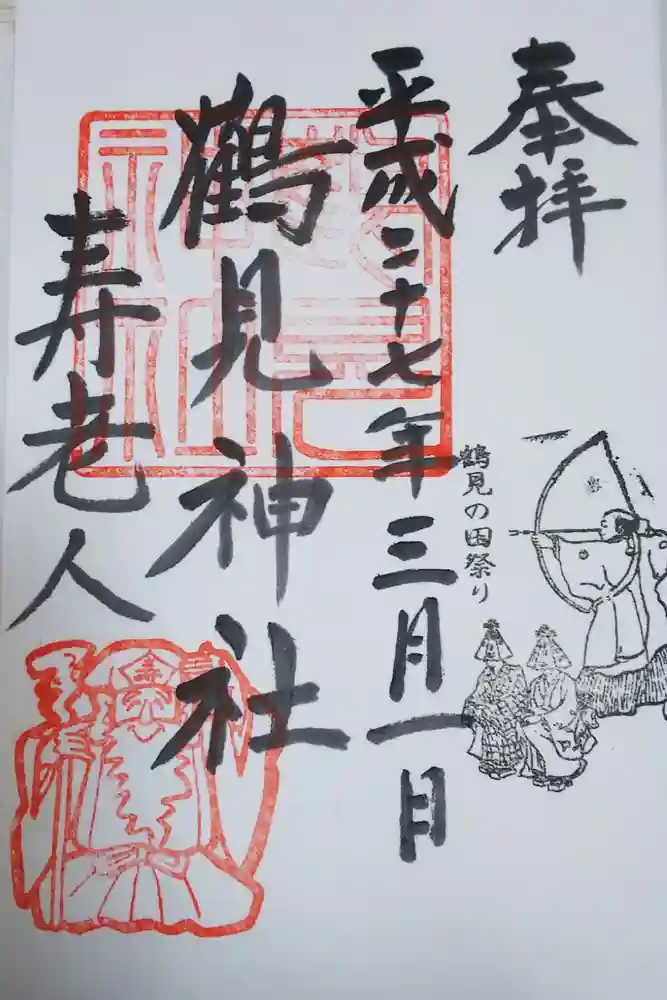 奉拝
鶴見の田祭り
平成二十七年三月一日
鶴見神社
寿老人
寿